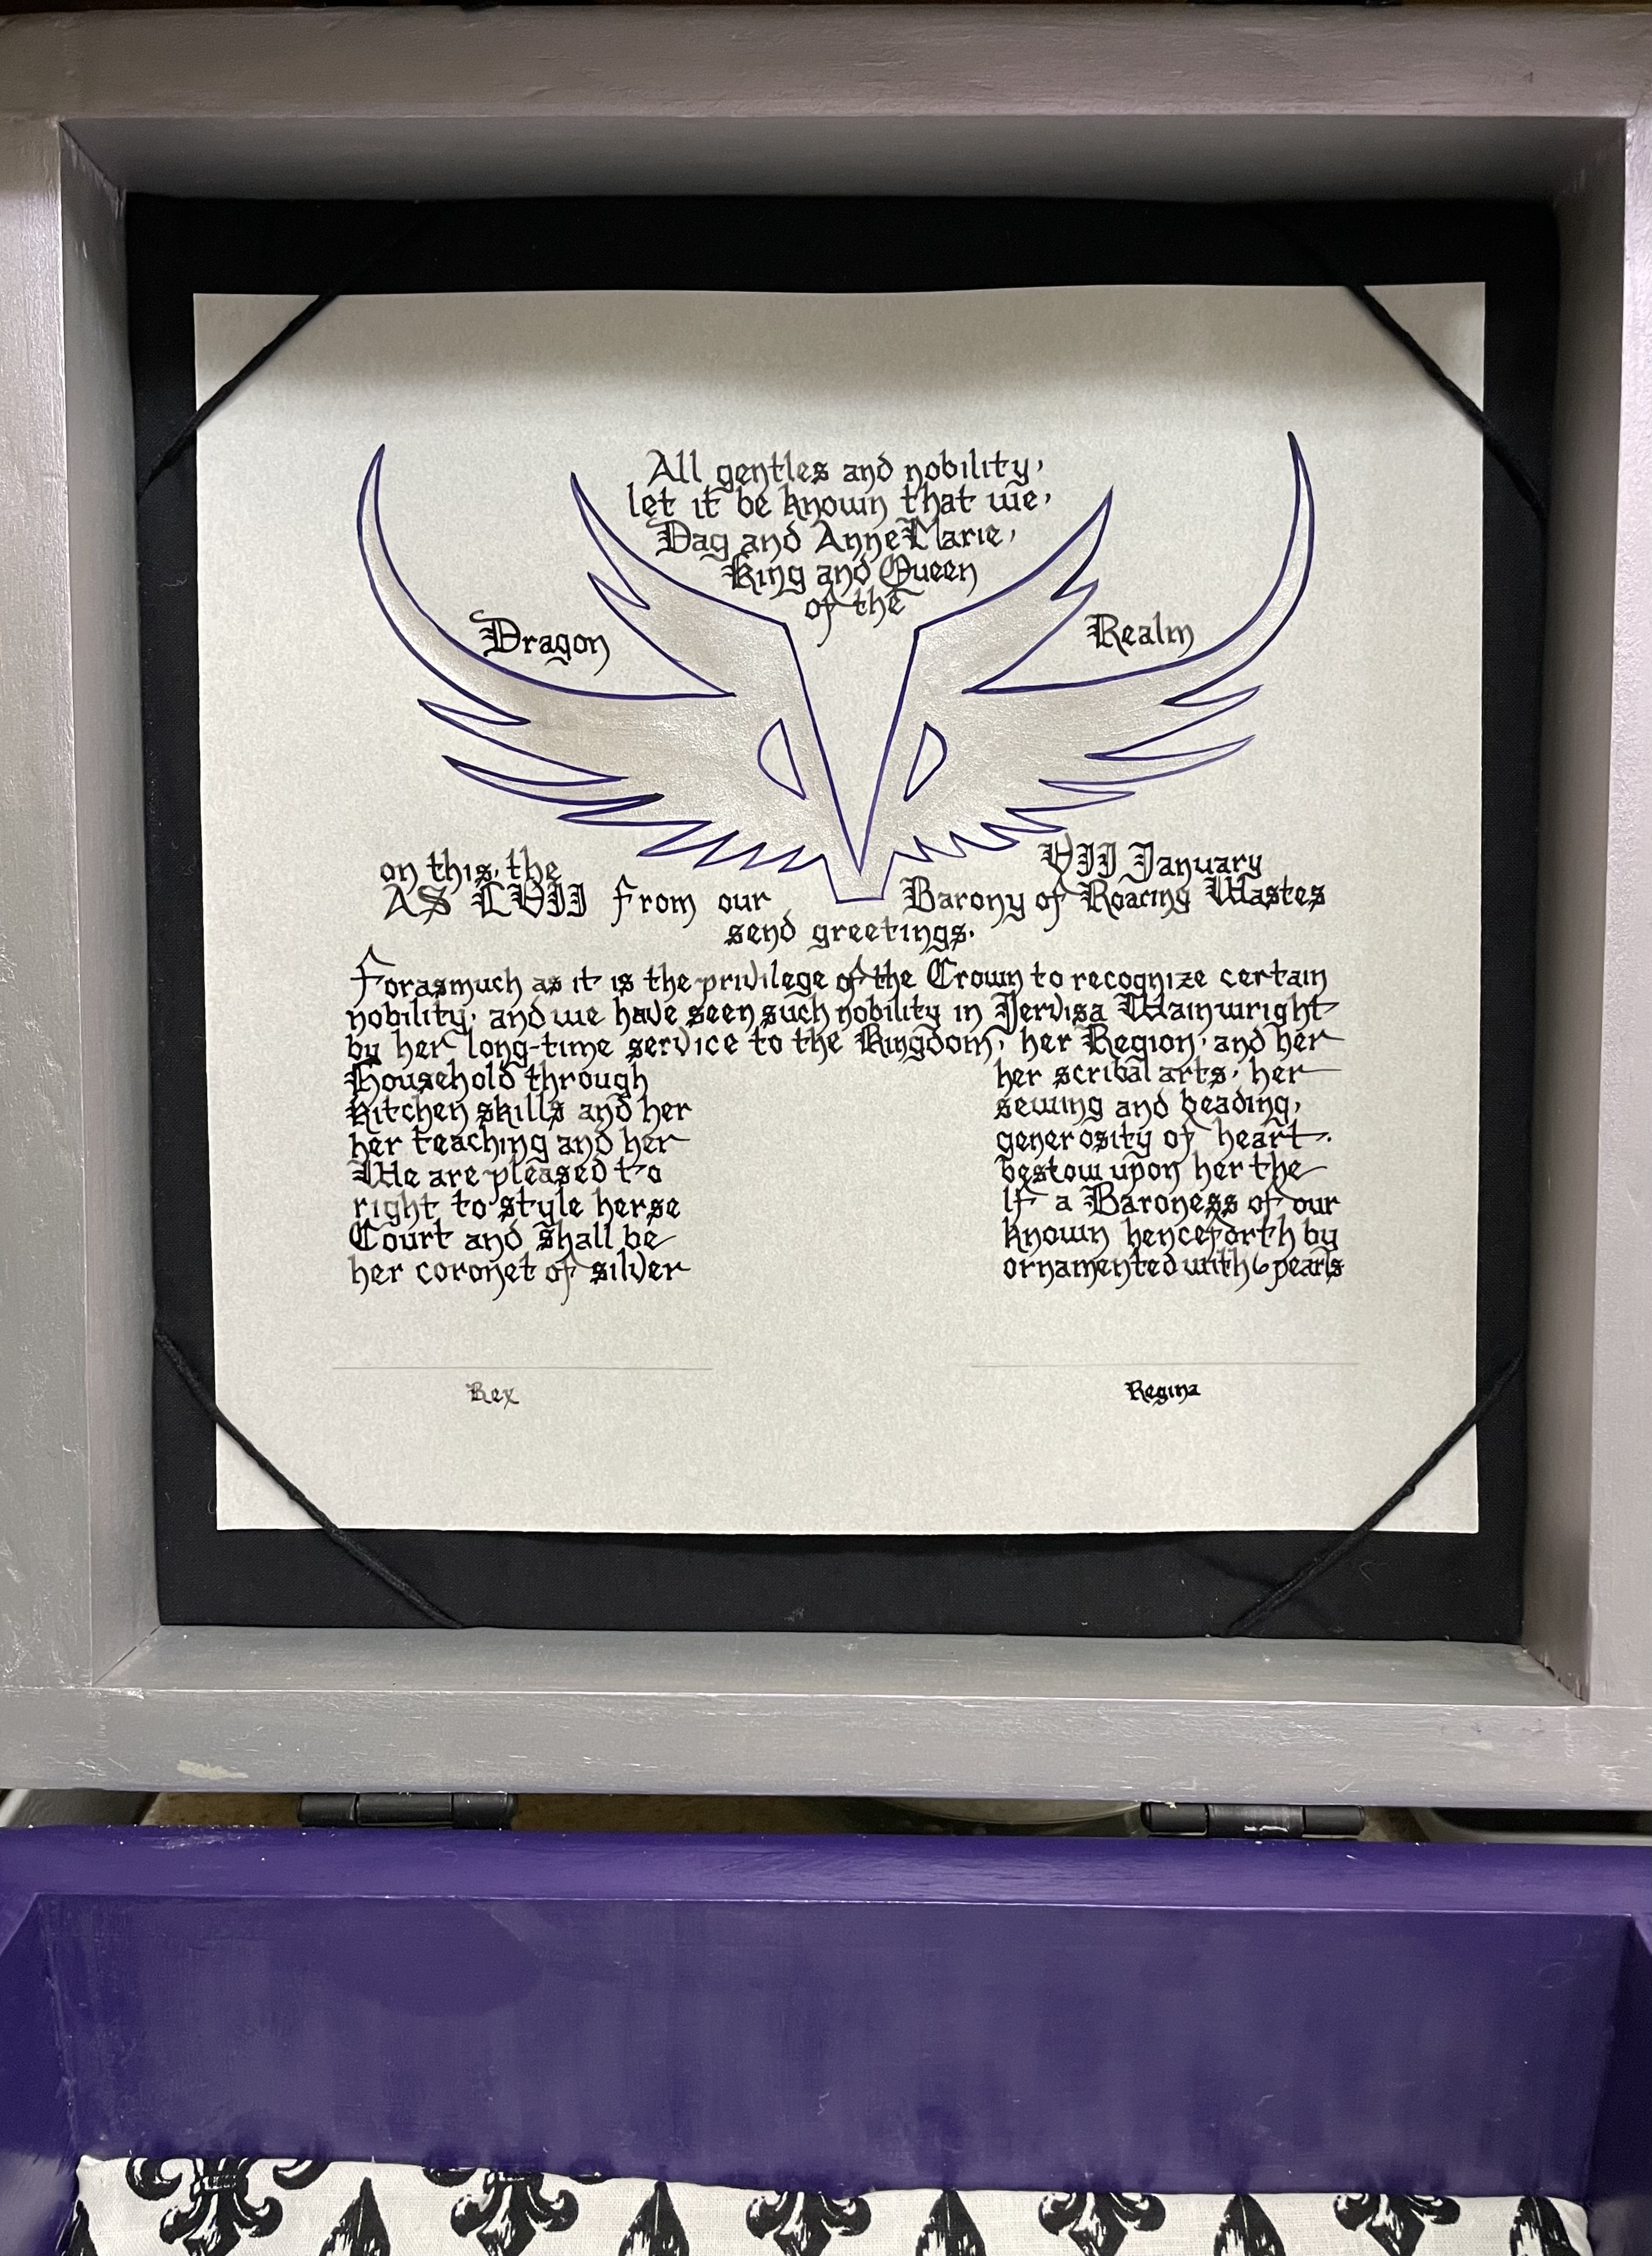 All gentles and nobility,
let it be known that we,
Dag and AnneMarie,
King and Queen
of the
Dragon Realm
on this, the VII January
AS LVII from our Barony of Roaring Wastes
send greetings.
Forasmuch as it is the privilege of the Crown to recognize certain
nobility, and we have seen such nobility in Jervisa Wainwright
by her long-time service to the Kingdom, her Region, and her
Household through her scribal arts, her
kitchen skills and her sewing and beading,
her teaching and her generosity of heart.
We are pleased to bestow upon her the
right to style herse lf a Baroness of our
Court and shall be known henceforth by
her coronet of silver ornamented with 6 pearls
Rex Regina